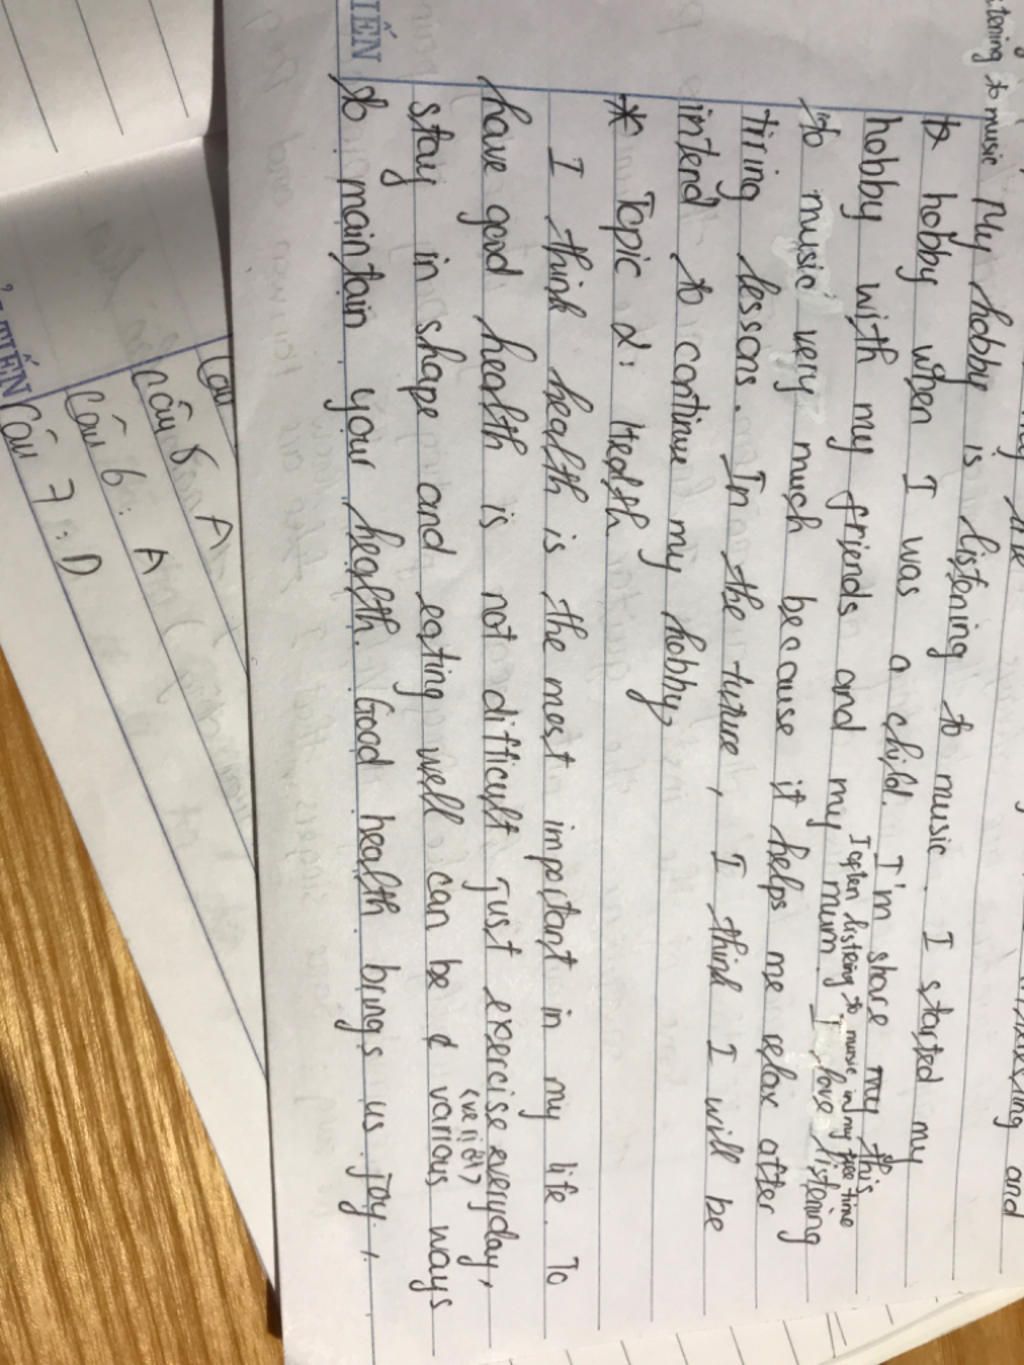 listening to music
and
My hobby is listening to music. I started my
hobby when I was a child. I'm share my this
I often listening to music in my free time
hobby with my friends and my mum. I love listening
to music very much because it helps me relax after
tiring lessons. In the future, I think I will be
intend to continue my hobby,
* Topic 2: Health
I think health is the most important in my life. To
have good health is not difficult just exercise everyday,
stay in shape and eating well can be various ways
to maintain your health. Good health brings us joy.
TIẾN
Câu 5 A
Câu 6: A
Câu 7: D
TIẾN